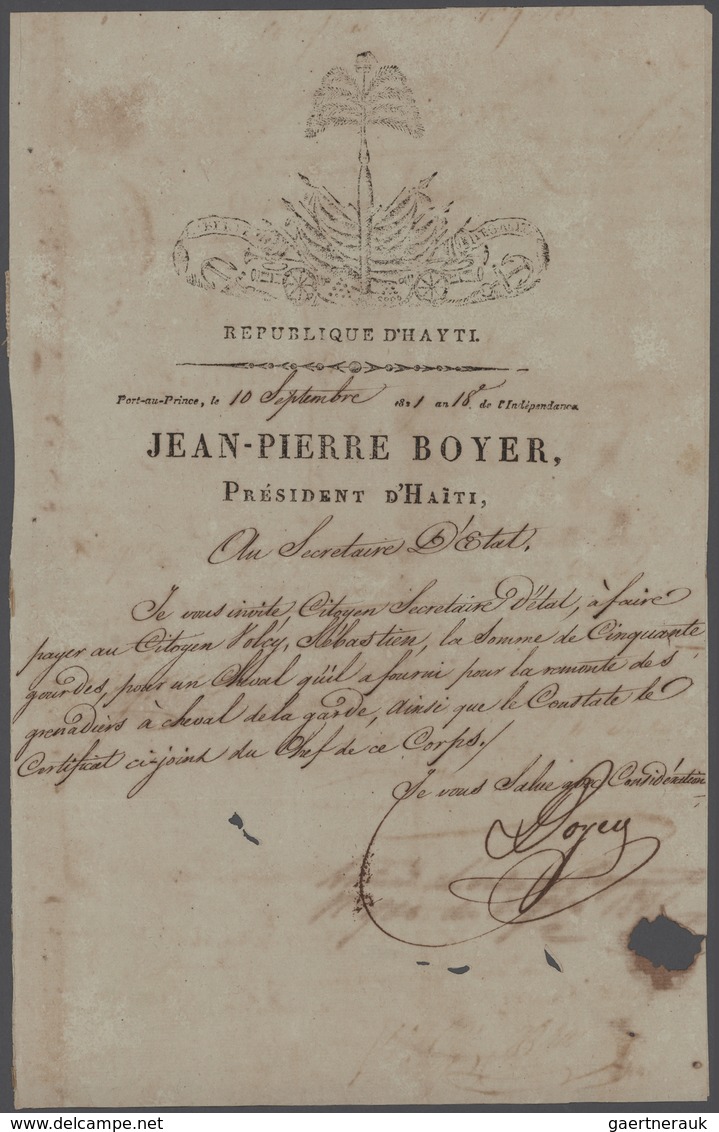 REPUBLIQUE D'HAYTI.
Port-au-Prince, le 10 Septembre 1821 an 18e de l'Indépendance.
JEAN-PIERRE BOYER,
PRÉSIDENT D'HAÏTI,
Au Secretaire D'Etat.
Je vous invite, Citoyen Secretaire D'état, à faire
payer au Citoyen Volcy, Sébastien, la Somme de Cinquante
gourdes, pour un Cheval qu'il a fourni pour la remonte des
grenadiers à cheval de la garde, ainsi que le Constate le
Certificat ci-joint du Chef de ce Corps./
Je vous Salue avec Considération
Boyer
gaertnerauk